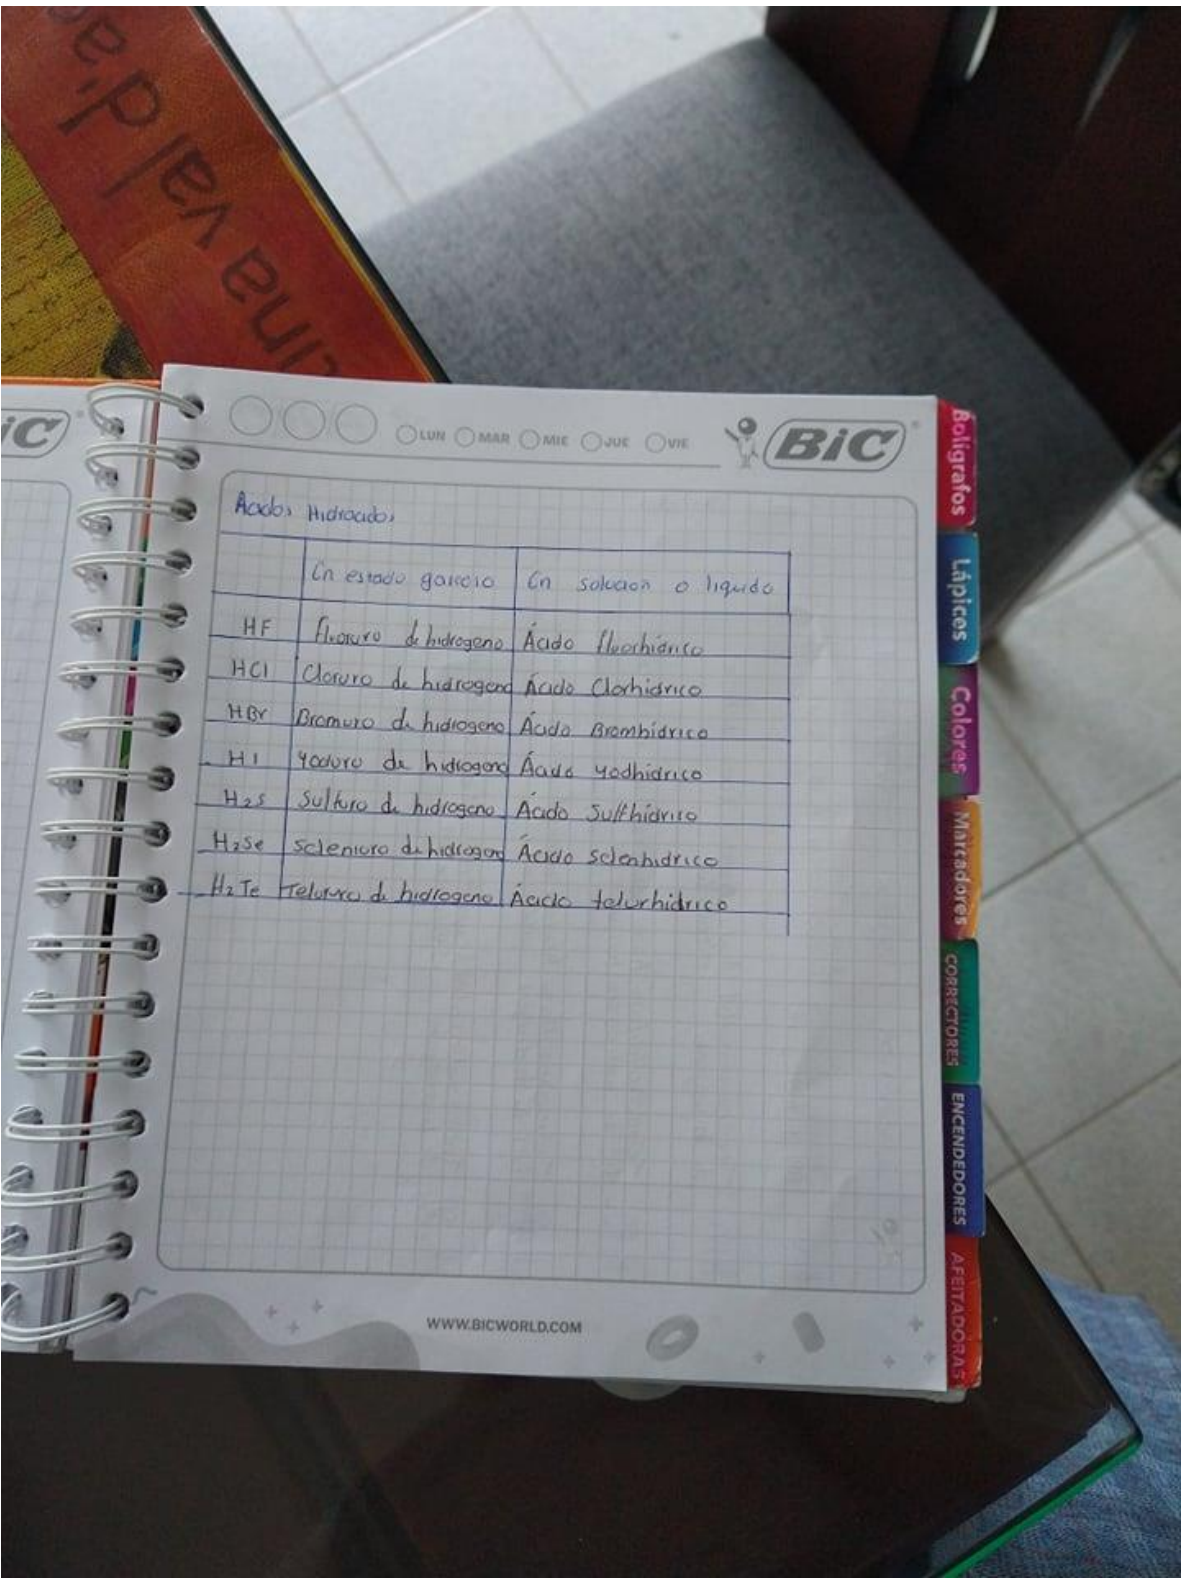 cina val d'ac
BiC
LUN MAR MIE JUE VIE
BiC
Acidos Hidracidos
En estado gaseoso En solucion o liquido
HF fluoruro de hidrogeno Ácido fluorhidrico
HCl Cloruro de hidrogeno Ácido Clorhidrico
HBr Bromuro de hidrogeno Ácido Bromhidrico
HI yoduro de hidrogeno Ácido yodhidrico
H2S Sulfuro de hidrogeno Ácido Sulfhidrico
H2Se Seleniuro de hidrogeno Ácido selenhidrico
H2Te Telururo de hidrogeno Ácido telurhidrico
WWW.BICWORLD.COM
Bolígrafos
Lápices
Colores
Marcadores
CORRECTORES
ENCENDEDORES
AFEITADORAS